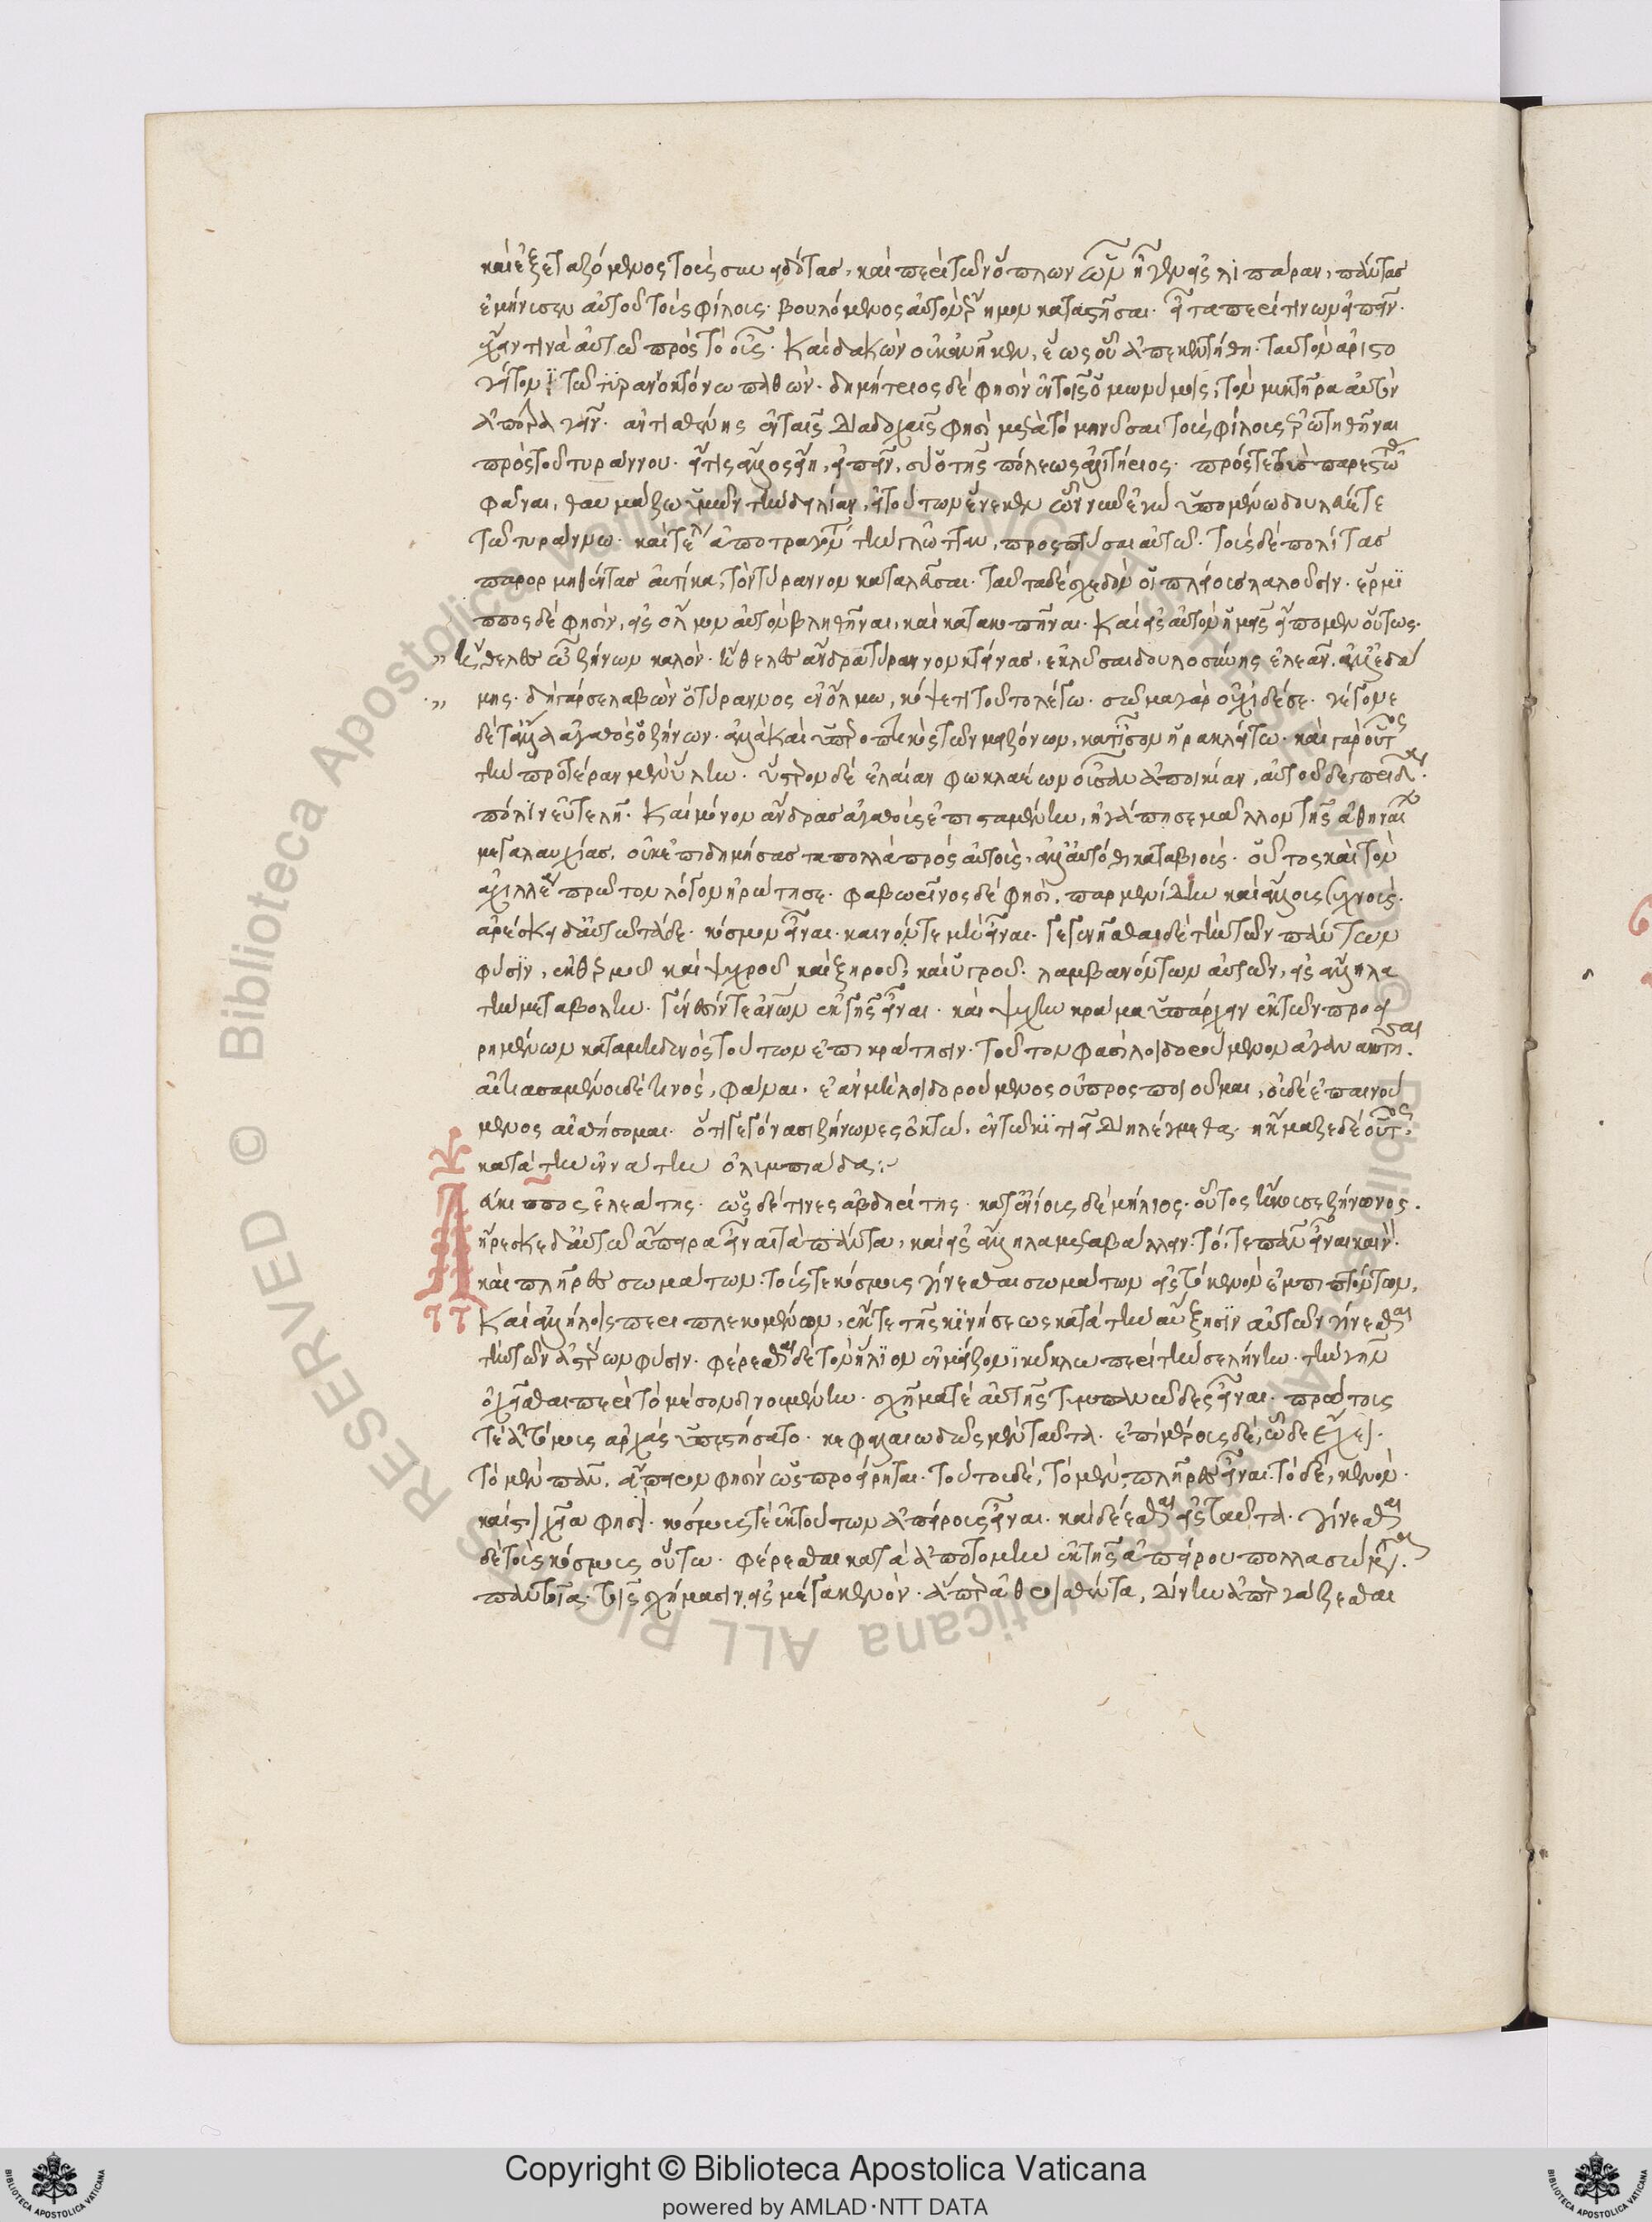 καὶ ἐξεταζόμενος τοὺς συνειδότας, καὶ περὶ τῶν ὅπλων ὧν ἦγεν εἰς λιπάραν, πάντας
ἐμήνυσεν αὐτοῦ τοὺς φίλους· βουλόμενος αὐτὸν ἔρημον καταστῆσαι· εἶτα περί τινων εἰπεῖν·
ἔχειν τινὰ αὐτῶ πρὸς τὸ οὖς· καὶ δακὼν οὐκ ἀνῆκεν, ἕως οὗ ἀπεκεντήθη· ταυτὸν ἀριστο
γείτονι τῶ τυραννοκτόνω παθών· δημήτριος δέ φησιν ἐν τοῖς ὁμωνύμοις, τὸν μυκτῆρα αὐτὸν
ἀποτραγεῖν· ἀντισθένης ἐν ταῖς διαδοχαῖς φησὶ μετὰ τὸ μηνῦσαι τοὺς φίλους ἐρωτηθῆναι
πρὸς τοῦ τυράννου· εἴ τις ἄλλος εἴη, εἰπεῖν, σὺ ὁ τῆς πόλεως ἀλιτήριος· πρός τε τοὺς παρεστῶτ
φάναι, θαυμάζω ὑμῶν τὴν δειλίαν, εἰ τούτων ἕνεκεν ὧν νῦν ἐγὼ ὑπομένω δουλεύετε
τῶ τυράννω· καὶ τέλ ἀποτραγόντ τὴν γλῶτταν, προσπτύσαι αὐτῶ· τοὺς δὲ πολίτας
παρορμηθέντας αὐτίκα, τὸν τύραννον καταλεῦσαι· ταῦτα δὲ σχεδὸν οἱ πλείους λαλοῦσιν· ἕρμι
ππος δέ φησιν, εἰς ὅλμον αὐτὸν βληθῆναι, καὶ κατακοπῆναι· καὶ εἰς αὐτὸν ἡμεῖς εἴπομεν οὕτως·
ἤθελες ὦ ζήνων καλόν· ἤθελες ἄνδρα τύραννον κτείνας, ἐκλῦσαι δουλοσύνης ἐλέαν. ἀλλ' ἐδά
μης· δὴ γάρ σε λαβὼν ὁ τύραννος ἐν ὅλμω, κόψε τί τοῦτο λέγω· σῶμα γὰρ οὐχὶ δέ σε· γέγονε
δὲ τἄλλα ἀγαθὸς ὁ ζήνων· ἀλλὰ καὶ ὑπεροπτικὸς τῶν μειζόνων, κατ' ἴσον ἡρακλείτω· καὶ γὰρ οὗτος
τὴν πρότερον μὲν ὑέλην· ὕστερον δὲ ἐλαίαν φωκαέων οὖσαν ἀποικίαν, αὐτοῦ δὲ πατρίδα.
πόλιν εὐτελῆ· καὶ μόνον ἄνδρας ἀγαθοὺς ἐπισταμένην, ἠγάπησε μᾶλλον τῆς ἀθηναίων
μεγαλαυχίας, οὐκ ἐπιδημήσας τὰ πολλὰ πρὸς αὐτοὺς, ἀλλ' αὐτόθι καταβιούς· οὗτος καὶ τὸν
ἀχιλλέα πρῶτον λόγον ἠρώτησε· φαβωρῖνος δέ φησι, παρμενίδην καὶ ἄλλους συχνούς.
ἀρέσκει δ' αὐτῶ τάδε· κόσμον εἶναι· κενόν τε μὴ εἶναι· γεγενῆσθαι δὲ τὴν τῶν πάντων
φύσιν, ἐκ θερμοῦ καὶ ψυχροῦ καὶ ξηροῦ, καὶ ὑγροῦ· λαμβανόντων αὐτῶν, εἰς ἄλληλα
τὴν μεταβολήν· γένεσίν τε ἀνθρώπων ἐκ γῆς εἶναι· καὶ ψυχὴν κράμα ὑπάρχειν ἐκ τῶν προει
ρημένων κατὰ μηδενὸς τούτων ἐπικράτησιν· τοῦτον φασὶ λοιδορούμενον ἀγανακτῆσαι·
αἰτιασαμένου δέ τινός, φάναι· ἐὰν μὴ λοιδορούμενος οὐ προσποιοῦμαι, οὐδὲ ἐπαινού
μενος αἰσθήσομαι· ὅτι γεγόνασι ζήνωνες ὀκτώ, ἐν τῶ κιττιεῖ διειλέγμεθα· ἤκμαζε δὲ οὗτος
κατὰ τὴν ἐννάτην ὀλυμπιάδα:
εύκιππος ἐλεάτης· ὡς δέ τινες ἀβδηρίτης· κατ' ἐνίους δὲ μήλιος· οὗτος ἤκουσε ζήνωνος.
ἤρεσκε δ' αὐτῶ ἄπειρα εἶναι τὰ πάντα, καὶ εἰς ἄλληλα μεταβάλλειν· τό, τε πᾶν εἶναι κενὸν
καὶ πλῆρες σωμάτων· τούς τε κόσμους γίνεσθαι σωμάτων εἰς τὸ κενὸν ἐμπιπτόντων,
καὶ ἀλλήλοις περιπλεκομένων, ἔκ τε τῆς κινήσεως κατὰ τὴν αὔξησιν αὐτῶν γίνεσθαι
τὴν τῶν ἀστέρων φύσιν· φέρεσθαι δὲ τὸν ἥλιον ἐν μείζονι κύκλω περὶ τὴν σελήνην· τὴν γῆν
ὀχεῖσθαι περὶ τὸ μέσον δινουμένην· σχῆμά τε αὐτῆς τυμπανῶδες εἶναι· πρῶτος
τε ἀτόμους ἀρχὰς ὑπεστήσατο· κεφαλαιωδῶς μὲν ταῦτα. ἐπὶ μέρους δέ, ὧδε ἔχει·
τὸ μὲν πᾶν, ἄπειρον φησὶν ὡς προείρηται· τούτου δέ, τὸ μὲν, πλῆρες εἶναι· τὸ δέ, κενόν·
καὶ στοιχεῖα φησι· κόσμους τε ἐκ τούτων ἀπείρους εἶναι· καὶ δύεσθαι εἰς ταῦτα. γίνεσθαι
δὲ τοὺς κόσμους οὕτω· φέρεσθαι κατὰ ἀποτομὴν ἐκ τῆς ἀπείρου πολλὰ σώματα
παντοῖα· τοῖς σχήμασιν εἰς μέγα κενόν· ἅπερ ἀθροισθέντα, δίνην ἀπεργάζεσθαι
Copyright © Biblioteca Apostolica Vaticana
powered by AMLAD·NTT DATA